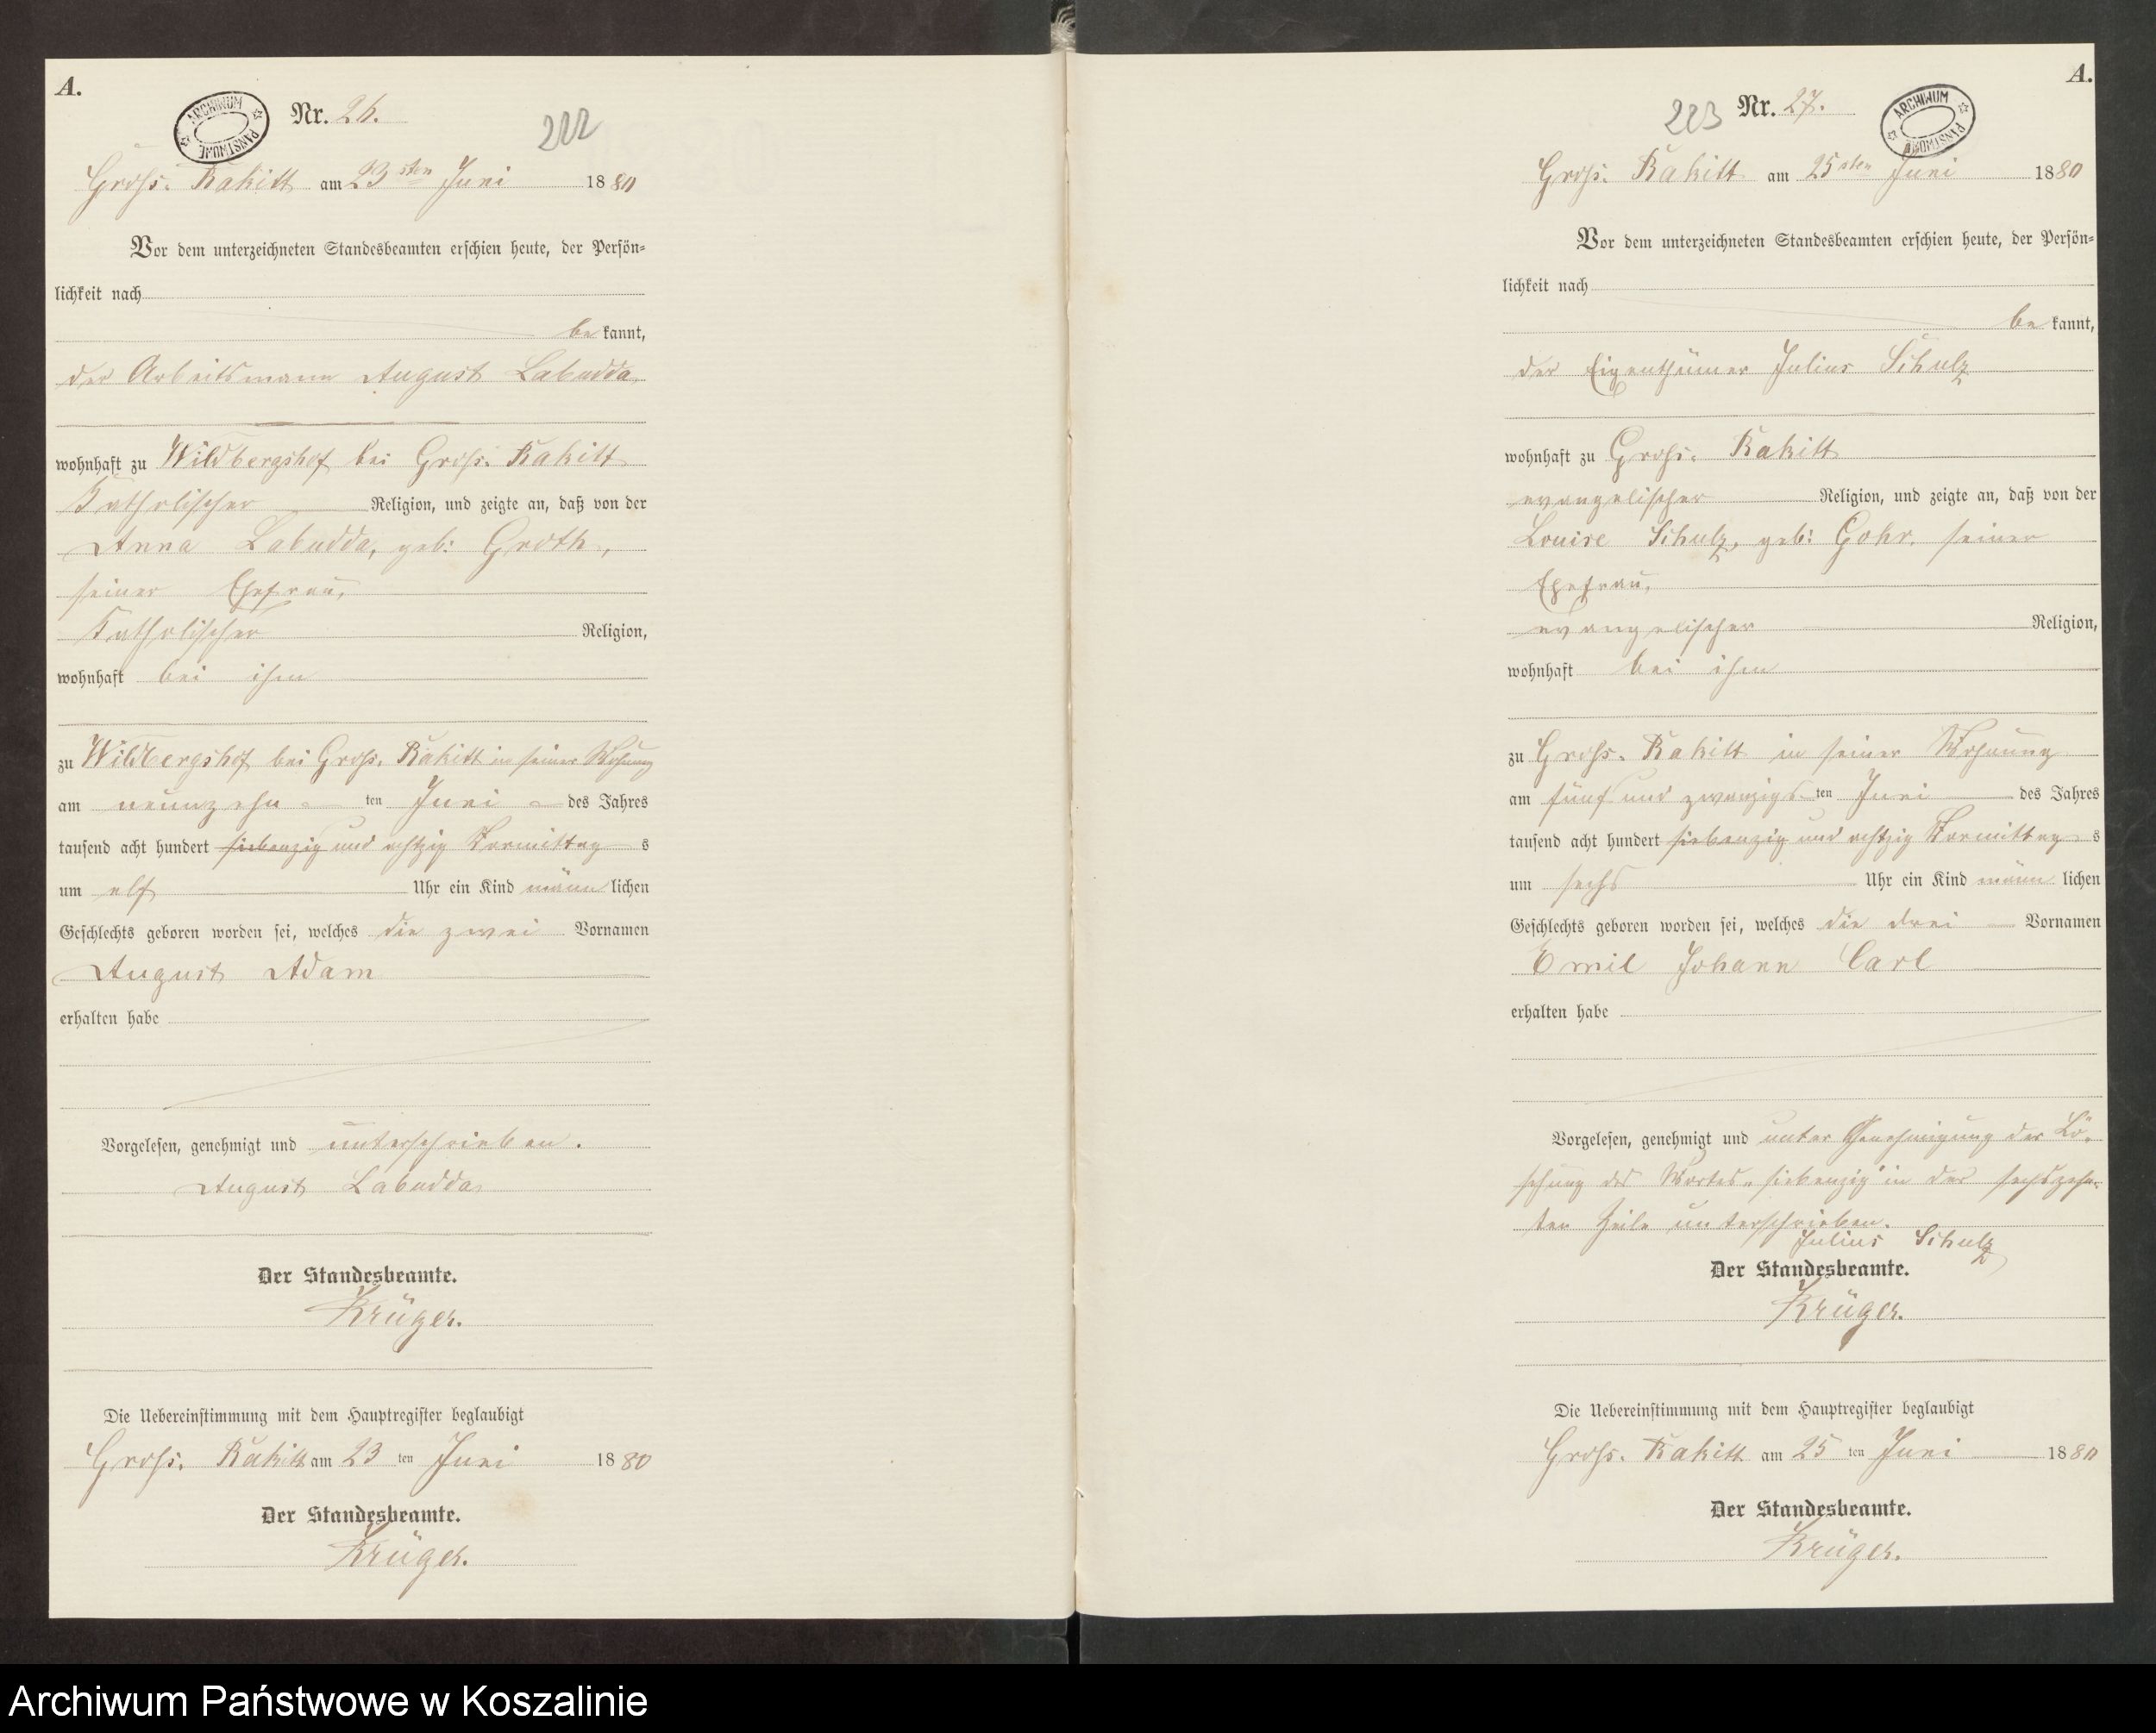 A.
ARCHIWUM PAŃSTWOWE
Nr. 26.
222
Groß-Rakitt am 23sten Juni 1880
Vor dem unterzeichneten Standesbeamten erschien heute, der Persön-
lichkeit nach
be kannt,
der Arbeitsmann August Labudda
wohnhaft zu Wildbergshof bei Groß-Rakitt
Katholischer Religion, und zeigte an, daß von der
Anna Labudda, geb: Groth,
seiner Ehefrau,
Katholischer Religion,
wohnhaft bei ihm
zu Wildbergshof bei Groß-Rakitt in seiner Wohnung
am neunzehn ten Juni des Jahres
tausend acht hundert siebenzig und achtzig Vormittag s
um elf Uhr ein Kind männ lichen
Geschlechts geboren worden sei, welches die zwei Vornamen
August Adam
erhalten habe
Vorgelesen, genehmigt und unterschrieben.
August Labudda
Der Standesbeamte.
Krüger.
Die Uebereinstimmung mit dem Hauptregister beglaubigt
Groß-Rakitt am 23 ten Juni 1880
Der Standesbeamte.
Krüger.
A.
223
Nr. 27.
ARCHIWUM PAŃSTWOWE
Groß-Rakitt am 25sten Juni 1880
Vor dem unterzeichneten Standesbeamten erschien heute, der Persön-
lichkeit nach
be kannt,
der Eigenthümer Julius Schulz
wohnhaft zu Groß-Rakitt
evangelischer Religion, und zeigte an, daß von der
Louise Schulz, geb: Gohr, seiner
Ehefrau,
evangelischer Religion,
wohnhaft bei ihm
zu Groß-Rakitt in seiner Wohnung
am fünf und zwanzigs ten Juni des Jahres
tausend acht hundert siebenzig und achtzig Vormittag s
um sechs Uhr ein Kind männ lichen
Geschlechts geboren worden sei, welches die drei Vornamen
Emil Johann Carl
erhalten habe
Vorgelesen, genehmigt und unter Genehmigung der Lö-
schung des Wortes "siebenzig" in der sechszehn-
ten Zeile unterschrieben.
Julius Schulz
Der Standesbeamte.
Krüger.
Die Uebereinstimmung mit dem Hauptregister beglaubigt
Groß-Rakitt am 25 ten Juni 1880
Der Standesbeamte.
Krüger.
Archiwum Państwowe w Koszalinie